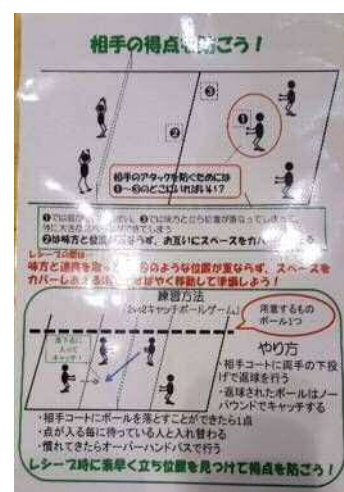 相手の得点を防ごう！
❸
❶
❷
相手のアタックを防ぐためには
❶〜❸のどこにいればいい？
❸では味方と立ち位置が重なってしまって、
❷は味方と位置が重ならず、お互いにスペースをカバー
レシーブの際は
味方と連携を取って のような位置が重ならず、スペースを
カバーしあえる すばやく移動して準備しよう！
練習方法
2vs2キャッチボールゲーム
用意するもの
ボール1つ
落下点に
入って
キャッチ！
やり方
・相手コートに両手の下投
げで返球を行う
・返球されたボールはノー
バウンドでキャッチする
・相手コートにボールを落とすことができたら1点
・点が入る毎に待っている人と入れ替わる
・慣れてきたらオーバーハンドパスで行う
レシーブ時に素早く立ち位置を見つけて得点を防ごう！